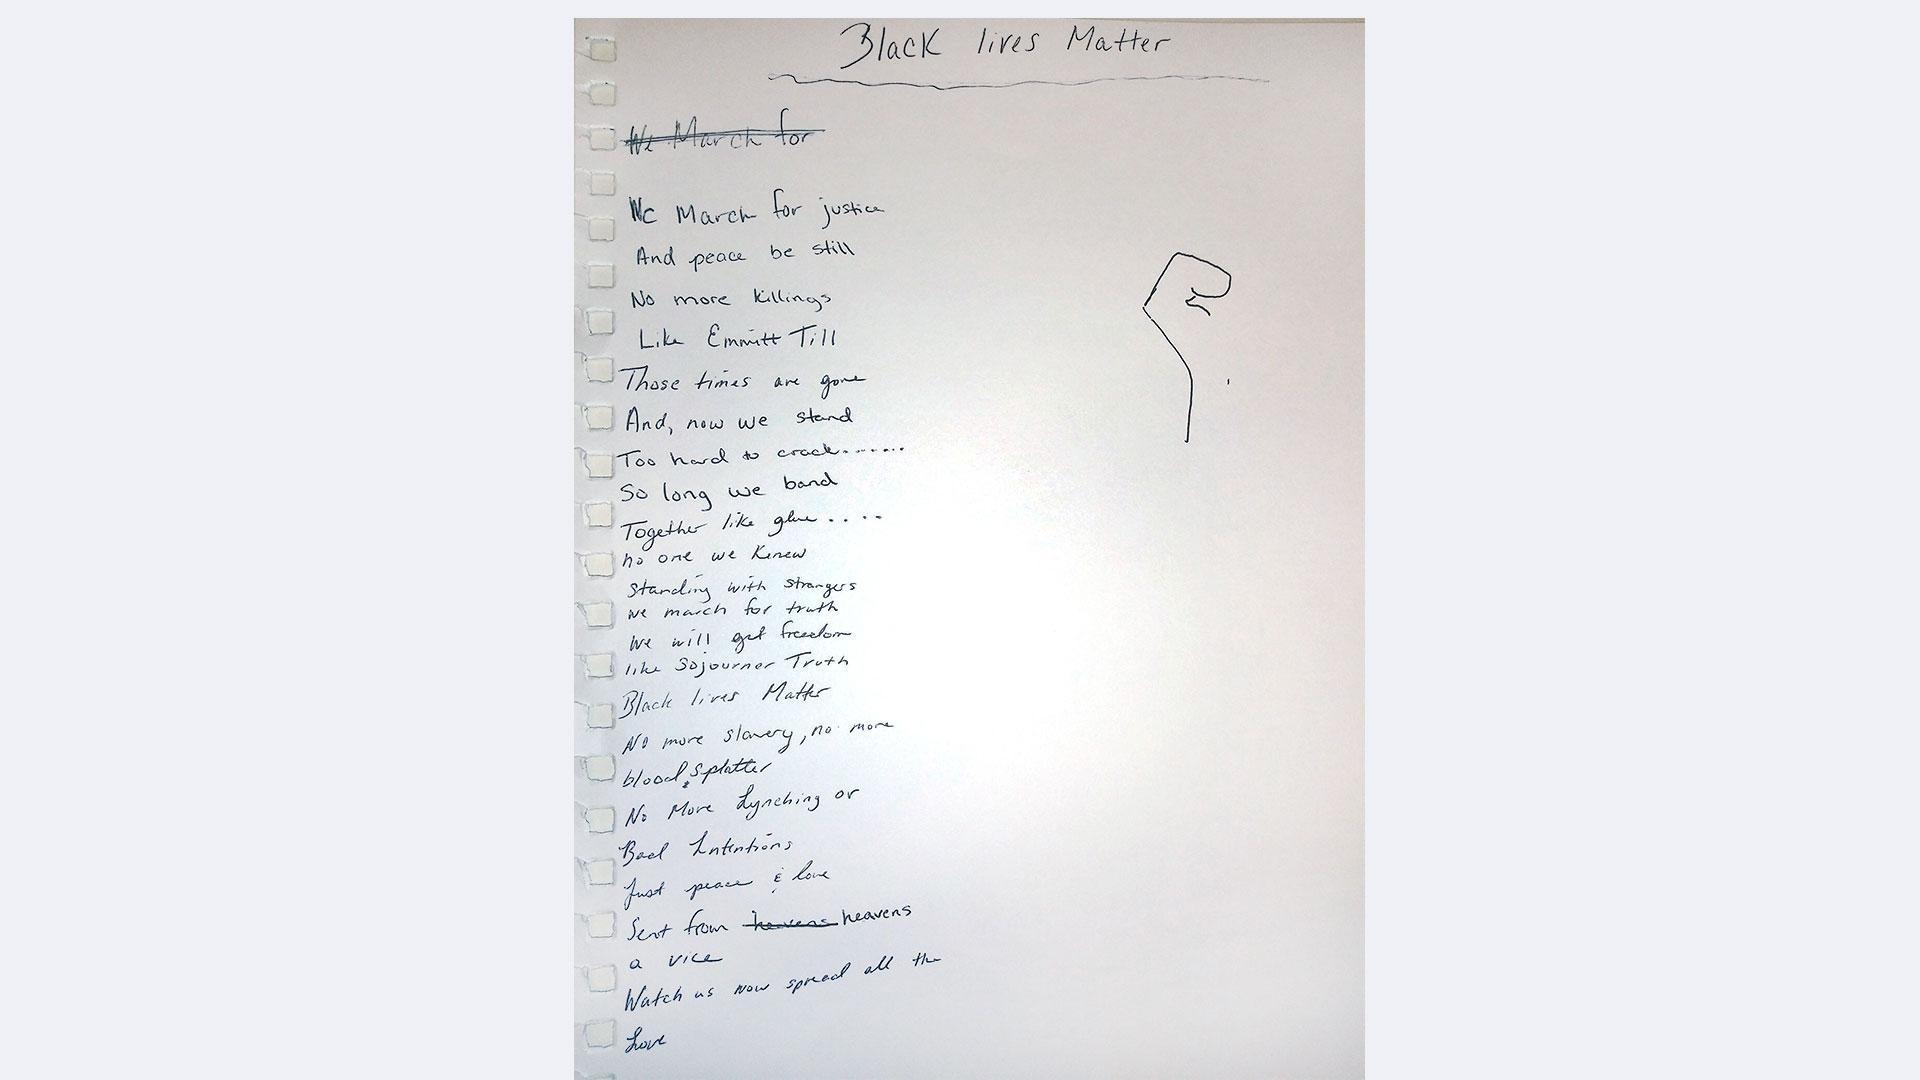 Black lives Matter
We March for
We March for justice
And peace be still
No more killings
Like Emmitt Till
Those times are gone
And, now we stand
Too hard to crack.......
So long we band
Together like glue....
no one we Knew
standing with strangers
we march for truth
We will get freedom
like Sojourner Truth
Black lives Matter
No more slavery, no more
blood splatter
No More Lynching or
Bad Intentions
Just peace & love
Sent from heavens heavens
a vice
Watch us now spread all the
Love